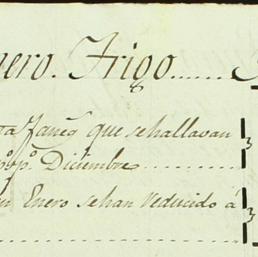 nero. Trigo......
ta faneg que se hallavan
pº pº Diciembre..........
en Enero se han reducido á